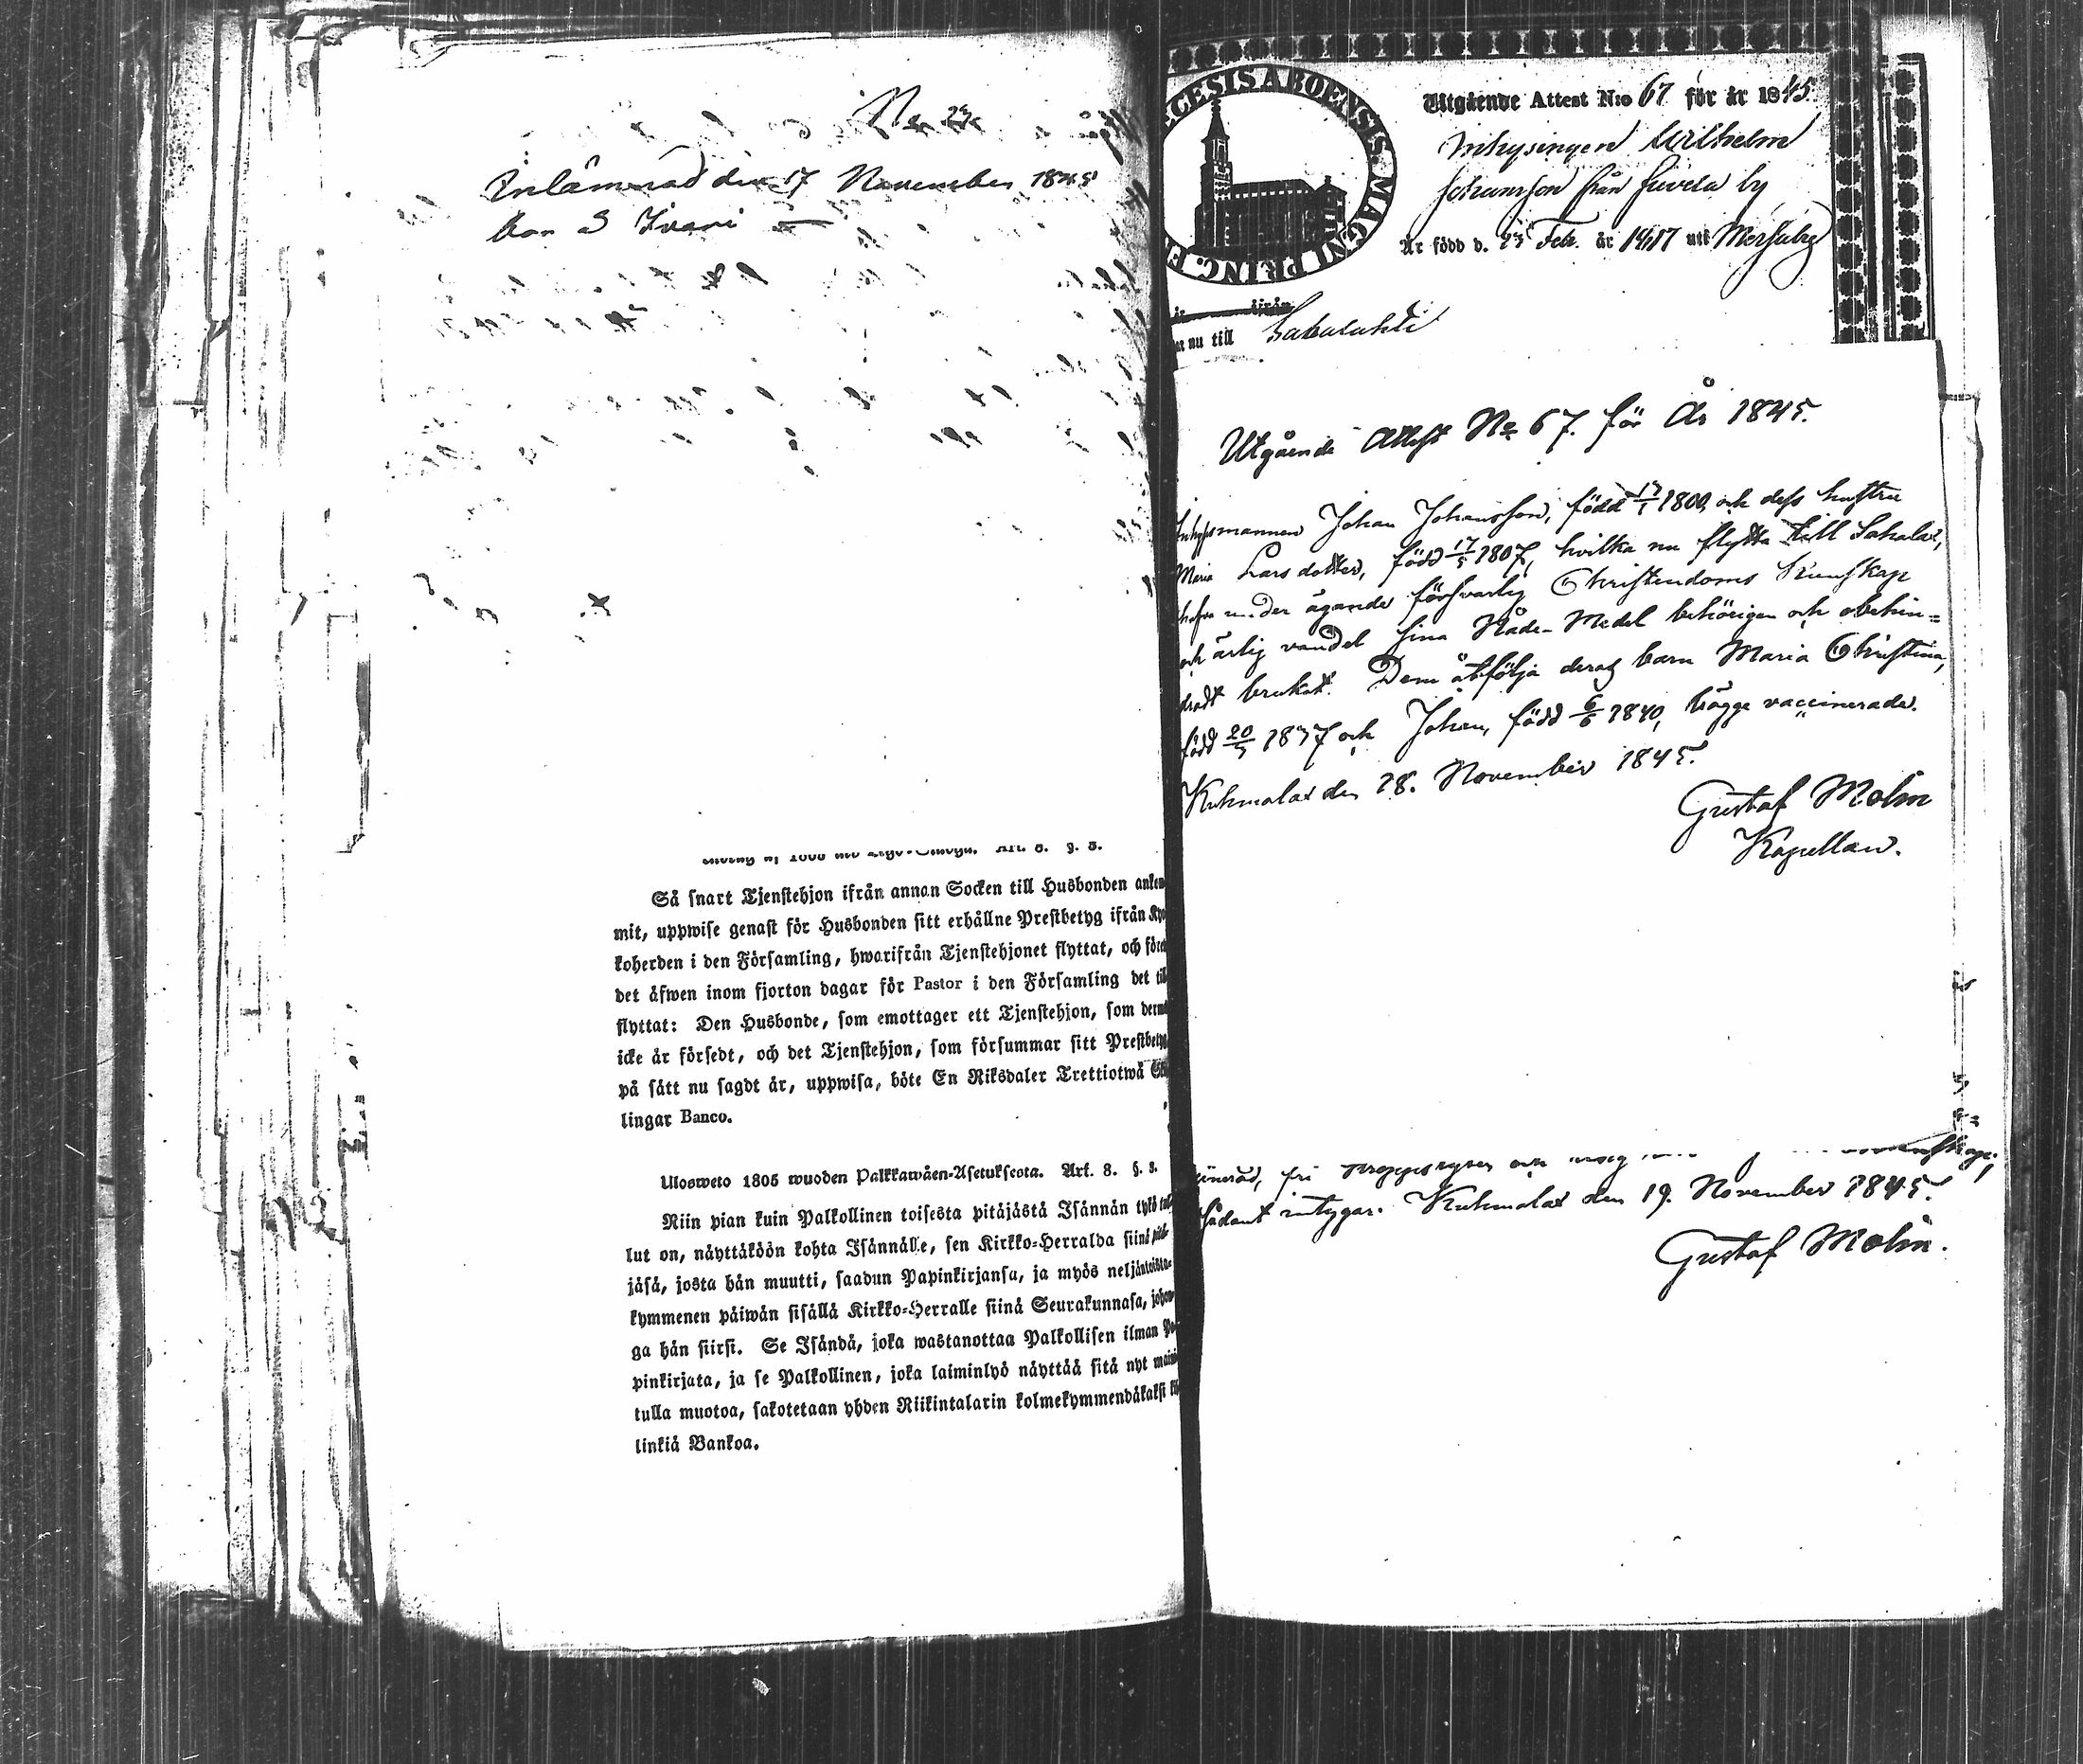 Inlämnad den 17 November 1845
Så snart Tjenstehjon ifrån annan Socken till Husbonden ankom
mit, uppwise genast för Husbonden sitt erhållne Prestbetyg ifrån Kyr
koherden i den Församling, hwarifrån Tjenstehjonet flyttat, och förete
det äfwen inom fjorton dagar för Pastor i den Församling det till
flyttat: Den Husbonde, som emottager ett Tjenstehjon, som dermed
icke är försedt, och det Tjenstehjon, som försummar sitt Prestbetyg
på sätt nu sagdt är, uppwisa, böte En Riksdaler Trettiotwå
lingar Banco.
Ulosweto 1805 wuoden Palkkawäen-Asetuksesta. Art. 8. §. 3.
Niin pian kuin Palkollinen toisesta pitäjästä Isännän tykö tul
lut on, näyttäköön kohta Isännälle, sen Kirkko-Herralda siinä pitä-
jäsä, josta hän muutti, saadun Papinkirjansa, ja myös neljäntoista-
kymmenen päiwän sisällä Kirkko-Herralle siinä Seurakunnasa, johon-
ga hän siirsi. Se Isändä, joka wastanottaa Palkollisen ilman Pa
pinkirjata, ja se Palkollinen, joka laiminlyö näyttää sitä nyt maini
tulla muotoa, sakotetaan yhden Riikintalarin kolmekymmendäkaksi kil
linkiä Bankoa.
CESIS ABOENSIS MAGNI PRINC. F
Utgående Attest N:o 67 för år 1845.
Inhysingen Wilhelm
Johansson från by
Är född d. 23 Feb. år 1817 uti
nu till Sakalahti
Utgående Attest No 67. för År 1845.
Inhysmannen Johan Johansson, född 17/1 1800, och dess hustru
Maria Larsdotter, född 17/5 1807, hvilka nu flytta till Sakalax,
hafva under ägande försvarlig Christendoms kunskap
och ärlig vandel sina Nåde-Medel behörigen och obehin=
dradt brukat. Dem åtfölja deras barn Maria Christina,
född 20/3 1837 och Johan, född 6/6 1840, bägge vaccinerade.
Kuhmalax den 18. November 1845.
Gustaf Molin
Kapellan.
sådant intygar. Kuhmalax den 19. November 1845.
Gustaf Molin.